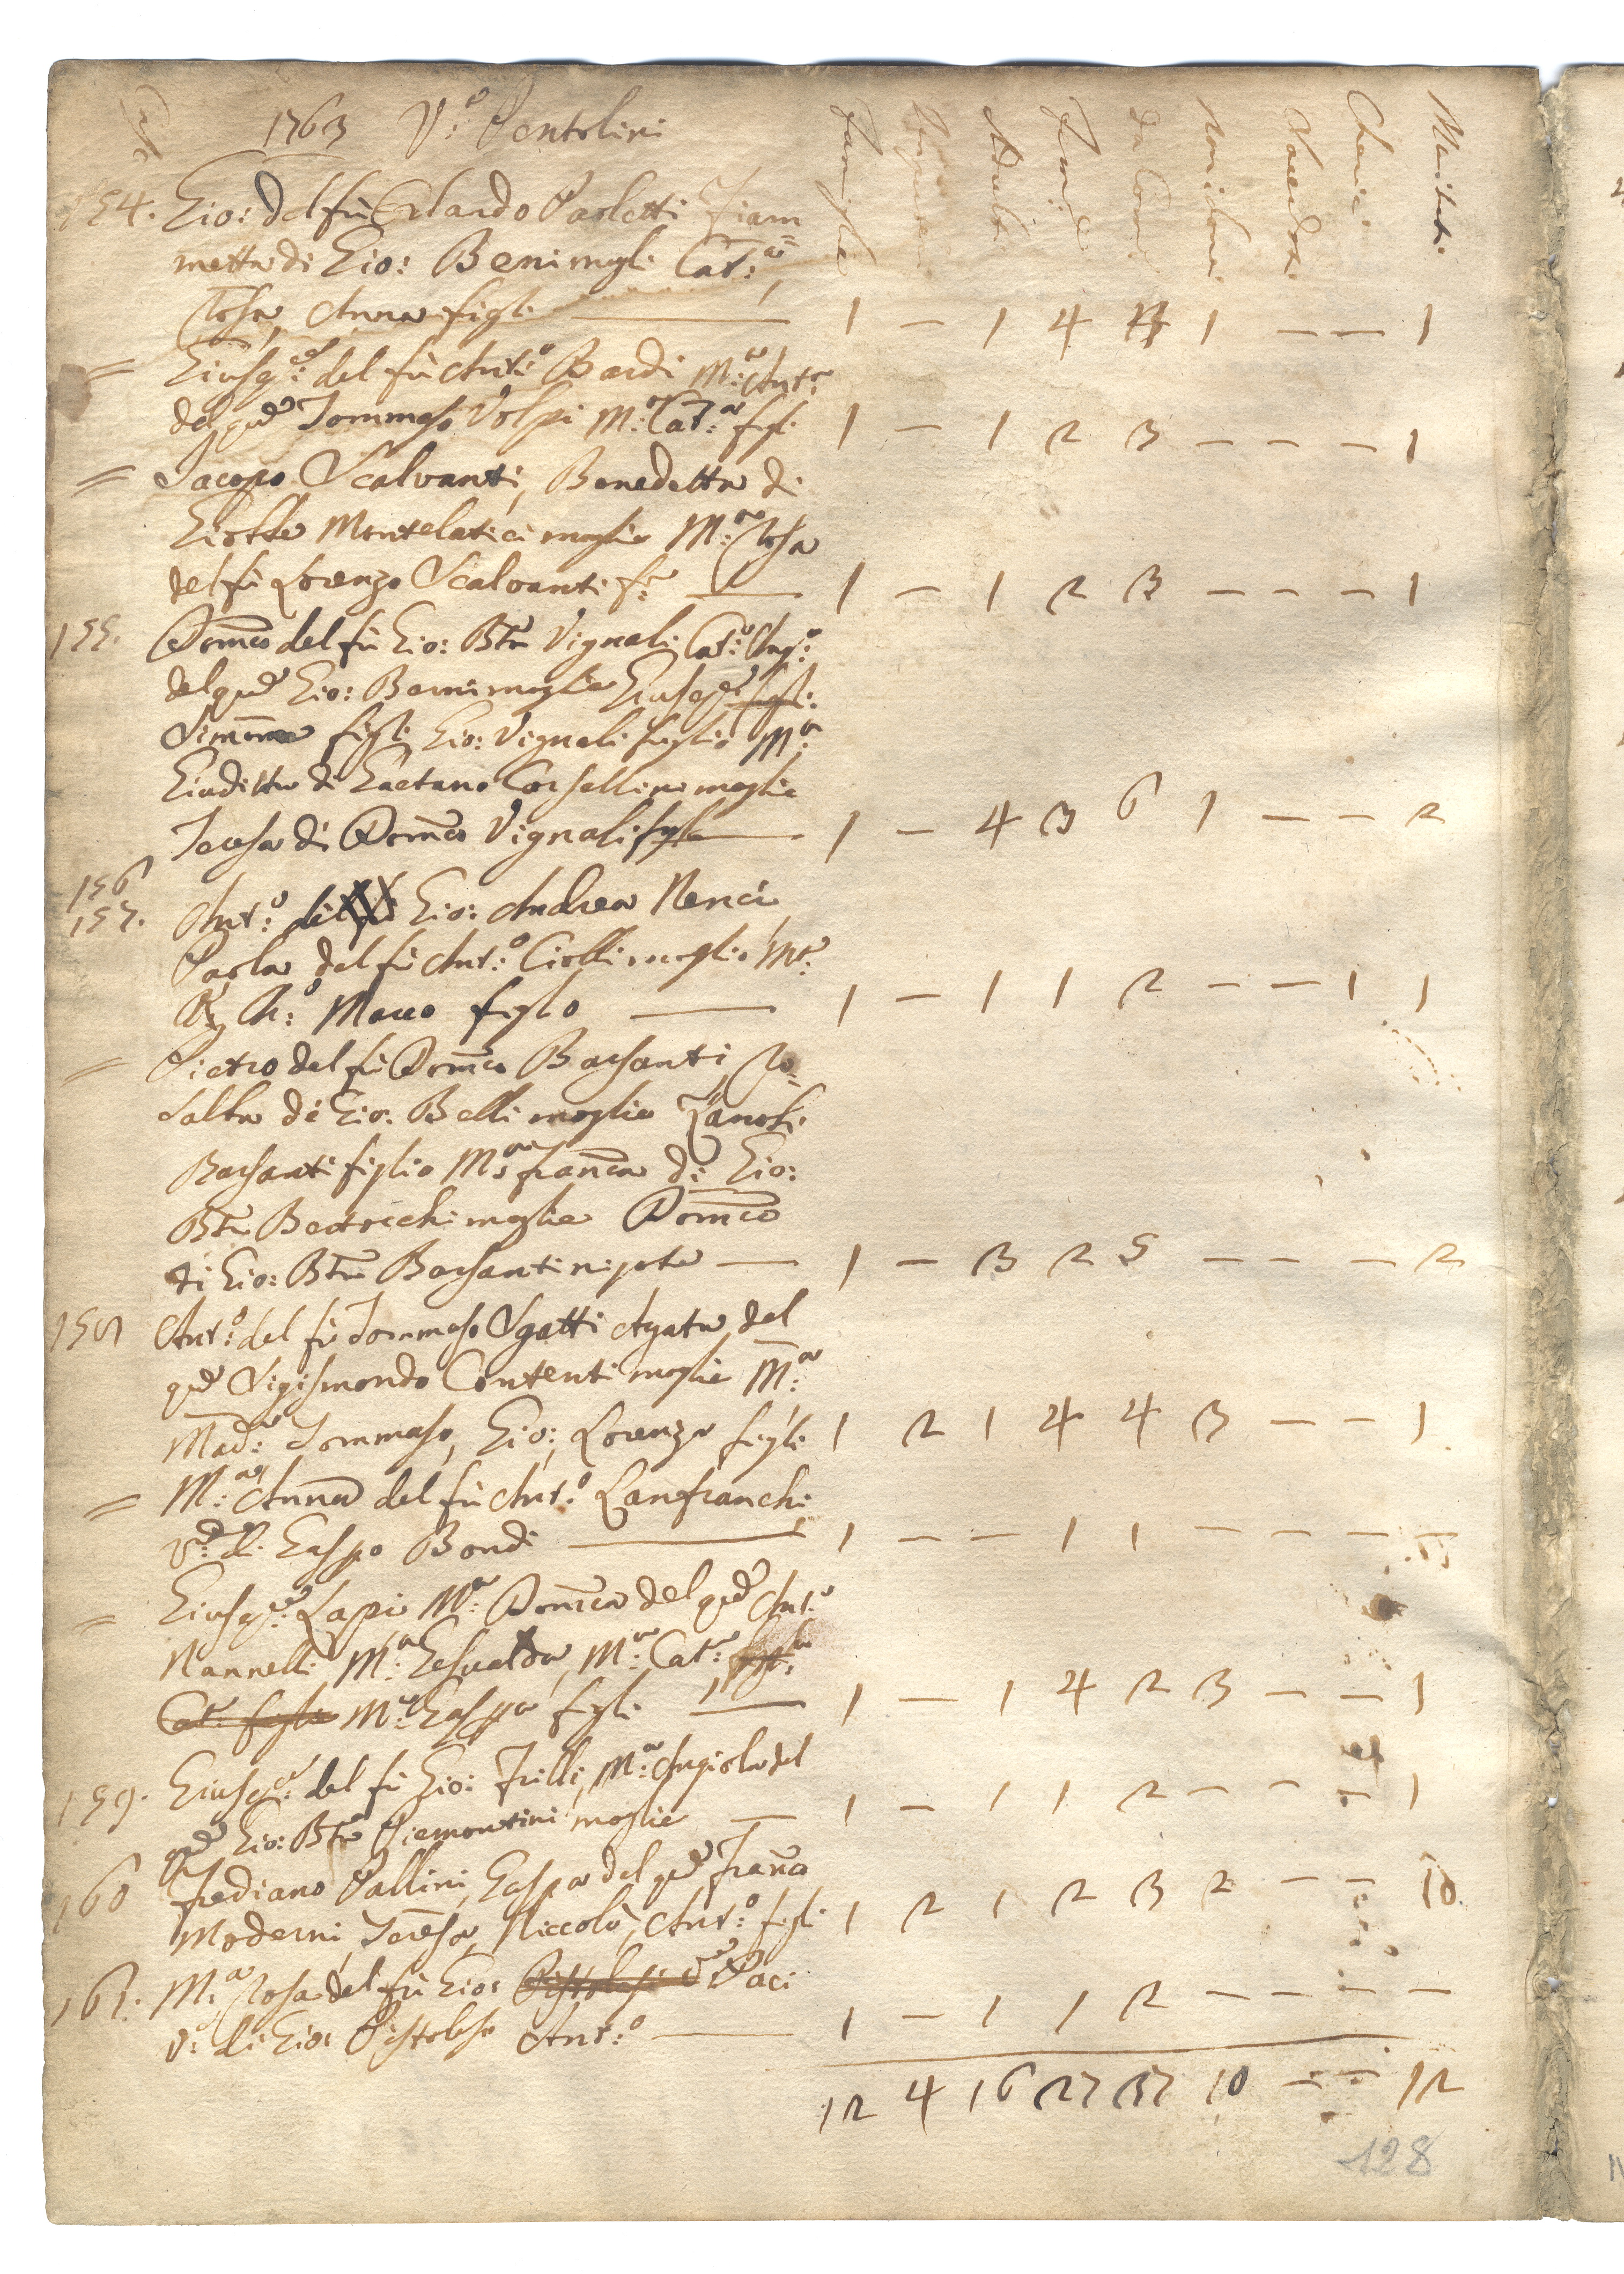 Case 1763 V:ᵃ Pentolini
Famiglie Adulti Femine Da Com Non Com Sacerdoti Cherici Mariti
154. Gio: del fù Orlando Paoletti Fiam
metta di Gio: Beni mogli Cat:ᵃ
Rosa, Anna figli 1 — 1 4 1 — — 1
= Giusep:ᵉ del fù Ant:º Bardi M:ᵃ Ant:ᵃ
del qᵐ Tommaso Volpi M:ᵃ Cat:ᵃ figli 1 — 1 2 3 — — — 1
= Jacopo Scalvanti, Benedetta di
Montelatici moglie M:ᵃ Rosa
del fù Lorenzo Scalvanti 1 — 1 2 3 — — — 1
155. Domco del fù Gio: Btta Vignali Cat:ᵃ
del qᵐ Gio: Barni moglie Giusep:ᵉ figli
figli Gio: Vignali figlio M:ᵃ
Giuditta di Gaetano Corsellini moglie
Teresa di Domco Vignali figla 1 — 4 3 6 1 — — 2
156
157. Ant:º del fù Gio: Andrea Nenci
Paola del fù Ant:º Ciolli moglie
Marco figlo 1 — 1 1 2 — — 1 1
= Pietro del fù Domco Barsanti, Ro=
salba di Gio: Belli moglie Zanobi
Barsanti figlio M:ᵃ Franca di Gio:
Btta Bertocchi moglie Domco
di Gio: Btta Barsanti nipote — 1 — 3 2 5 — — — 2
158 Ant:º del fù Tommaso Sgatti Agata del
qᵐ Sigismondo Contenti moglie M:ᵃ
Madᵃ: Tommaso, Gio:, Lorenzo figli 1 2 1 4 4 3 — — 1
= M:ᵃ Anna del fù Ant:º Lanfranchi
Vᵃ: di Gaspo Bondi 1 — — 1 1 — — — —
= Giusep:ᵉ Lapi M:ᵃ Domca del qᵐ Ant:º
Nannelli M:ᵃ Gesualda, M:ᵃ Cat:ᵃ figla
Cat: figlia M:ᵃ Gaspa figli 1 — 1 4 2 3 — — 1
159. Giusep:ᵉ del fù Gio: Frilli, M:ᵃ Angiola del
qᵐ Gio: Btta Piemontini moglie — 1 — 1 1 2 — — — 1
160 Frediano Pallini, Gaspa del qᵐ Franco
Moderni, Teresa, Niccolò, Ant:º figli 1 2 1 2 3 2 — — 1
161. M:ᵃ Rosa del fù Gio: Paci
V: di Gio: Pistolesi Ant:º — 1 — 1 1 2 — — — —
12 4 16 27 37 10 — — 12
128